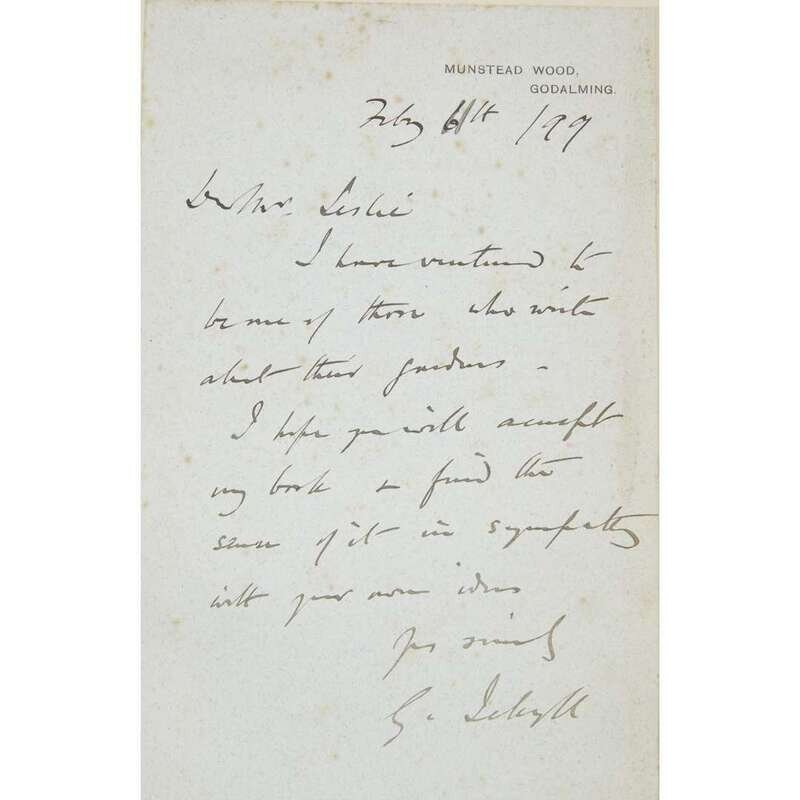 MUNSTEAD WOOD,
GODALMING.
Feby 6th /99
Dear Mr. Leslie
I have ventured to
be one of those who write
about their gardens -
I hope you will accept
my book & find the
sense of it in sympathy
with your own ideas
Yrs sincely
G. Jekyll